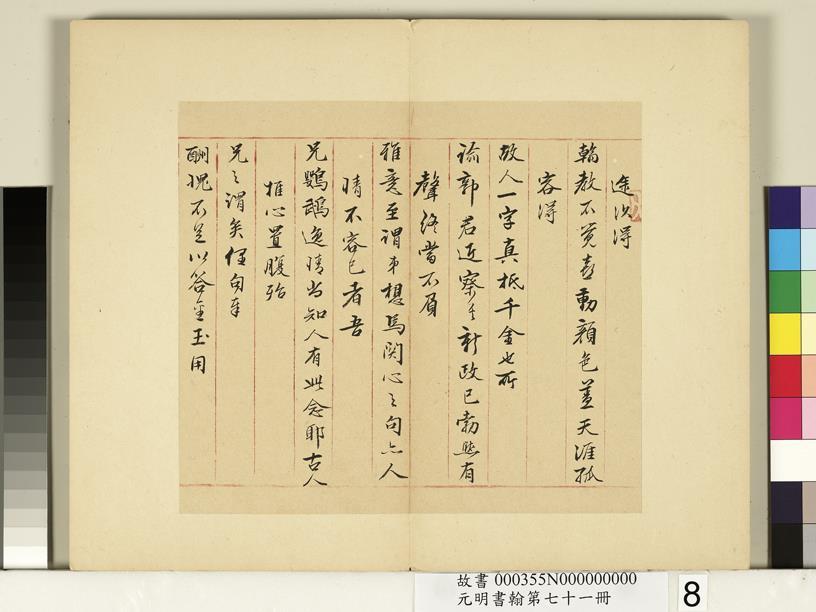 途次得
翰教不覺喜動顏色蓋天涯孤
客得
故人一字真抵千金也所
諭郭君近察其新政已勃然有
聲終當不負
雅意至謂弟想焉関心之句亦人
情不容已者吾
兄鸚鵡逸情当知人有此念耶古人
推心置腹殆
兄之謂矣俚句奉
酬愧不足以答金玉用
故書 000355N000000000
元明書翰第七十一冊
8